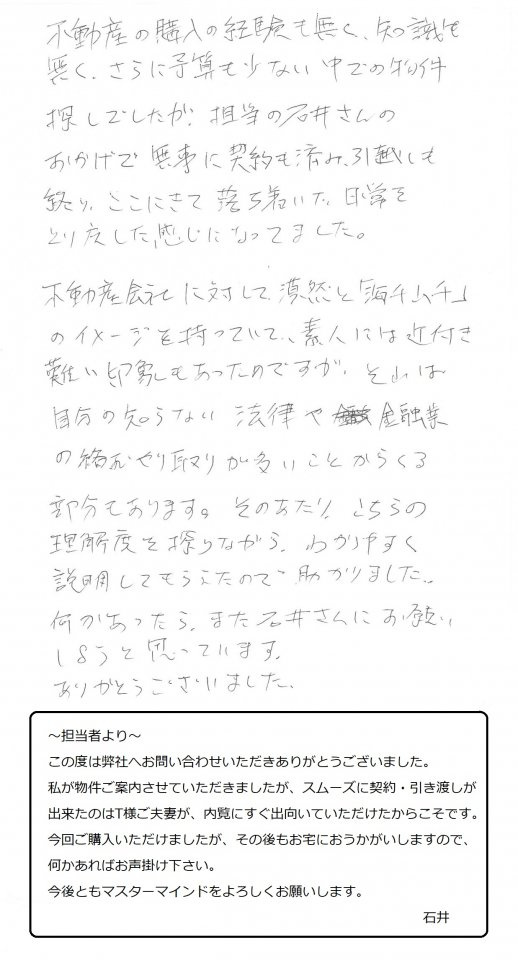 不動産の購入の経験も無く、知識も
無く、さらに予算も少ない中での物件
探しでしたが、担当の石井さんの
おかげで無事に契約も済み、引越しも
終り、ここにきて落ち着いた日常を
とり戻した感じになってました。
不動産会社に対して漠然と「海千山千」
のイメージを持っていて、素人には近付き
難い印象もあったのですが、それは
自分の知らない法律や金融業
の絡むやり取りが多いことからくる
部分もあります。そのあたり、こちらの
理解度を探りながら、わかりやすく
説明してもらえたので助かりました。
何かあったら、また石井さんにお願い
しようと思っています。
ありがとうございました。
～担当者より～
この度は弊社へお問い合わせいただきありがとうございました。
私が物件ご案内させていただきましたが、スムーズに契約・引き渡しが
出来たのはT様ご夫妻が、内覧にすぐ出向いていただけたからこそです。
今回ご購入いただけましたが、その後もお宅におうかがいしますので、
何かあればお声掛け下さい。
今後ともマスターマインドをよろしくお願いします。
石井